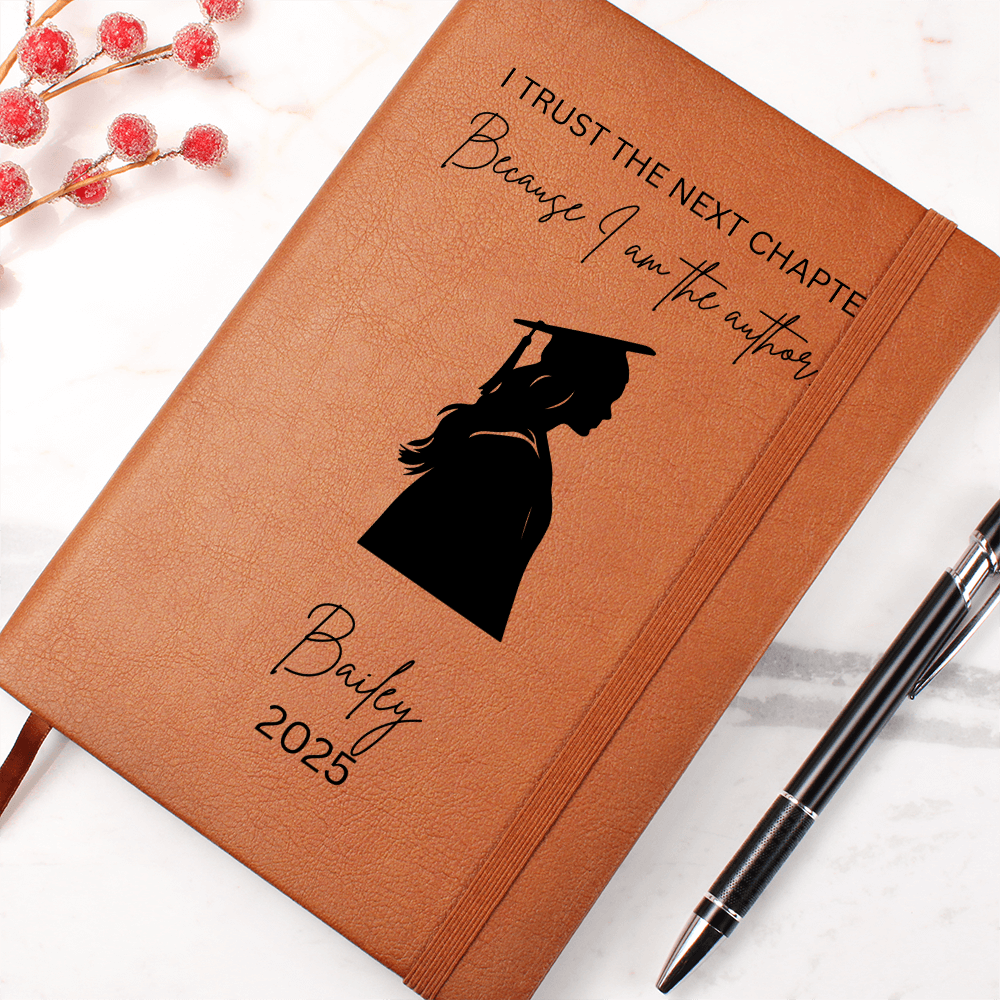 I TRUST THE NEXT CHAPTE
Because I am the author
Bailey
2025